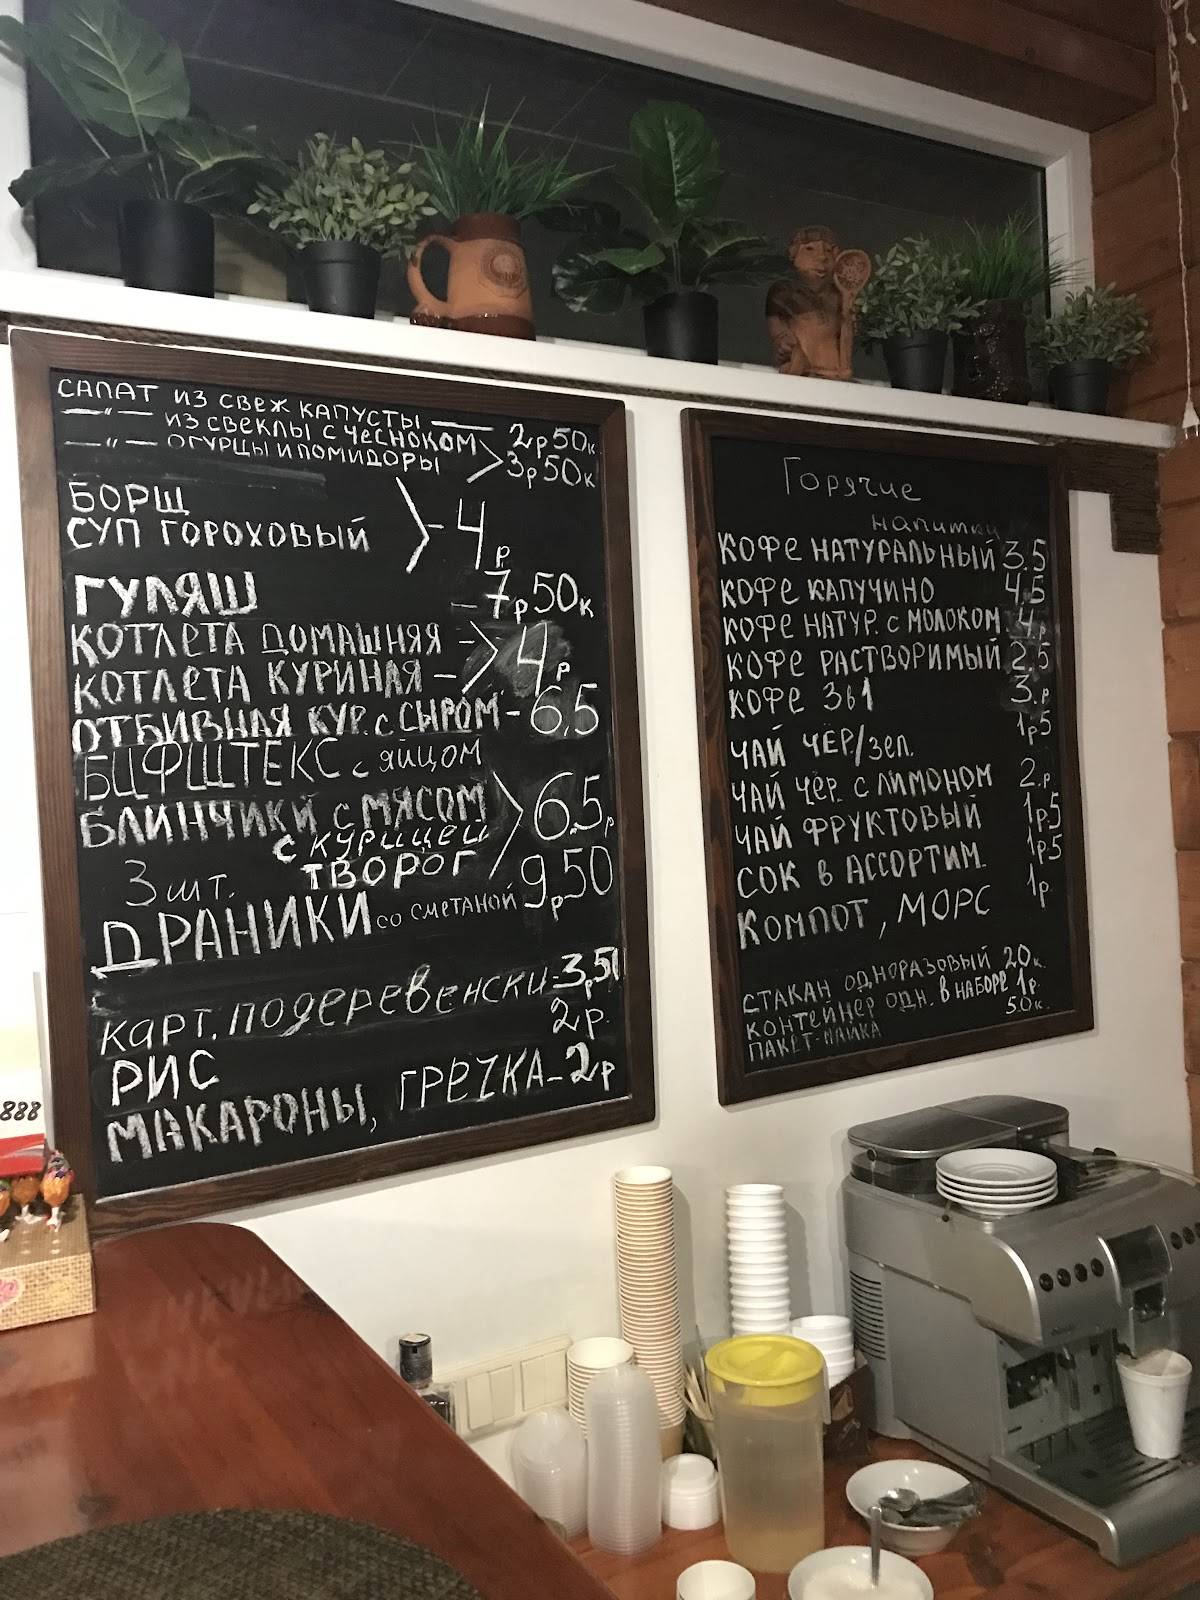 САЛАТ ИЗ СВЕЖ КАПУСТЫ —
—"— ИЗ СВЕКЛЫ С ЧЕСНОКОМ 2р50к
—"— ОГУРЦЫ И ПОМИДОРЫ 3р50к
БОРЩ
СУП ГОРОХОВЫЙ - 4р
ГУЛЯШ - 7р50к
КОТЛЕТА ДОМАШНЯЯ -
КОТЛЕТА КУРИНАЯ - 4р
ОТБИВНАЯ КУР. с СЫРОМ - 6,5
БИФШТЕКС с яйцом
БЛИНЧИКИ с МЯСОМ 6.5р
с КУРИЦЕЙ
3 шт. ТВОРОГ
ДРАНИКИ со СМЕТАНОЙ 9р50
КАРТ. ПОДЕРЕВЕНСКИ - 3р50
РИС 2р.
МАКАРОНЫ, ГРЕЧКА - 2р
Горячие
напитки
КОФЕ НАТУРАЛЬНЫЙ 3.5
КОФЕ КАПУЧИНО 4.5
КОФЕ НАТУР. С МОЛОКОМ. 4.р
КОФЕ РАСТВОРИМЫЙ 2.5
КОФЕ 3в1 3.р
ЧАЙ ЧЁР./ЗЕЛ. 1р5
ЧАЙ ЧЁР. С ЛИМОНОМ 2.р.
ЧАЙ ФРУКТОВЫЙ 1р5
СОК В АССОРТИМ. 1р5
КОМПОТ, МОРС 1р.
СТАКАН ОДНОРАЗОВЫЙ 20к.
КОНТЕЙНЕР ОДН. В НАБОРЕ 1р.
ПАКЕТ-МАЙКА 50к.
888